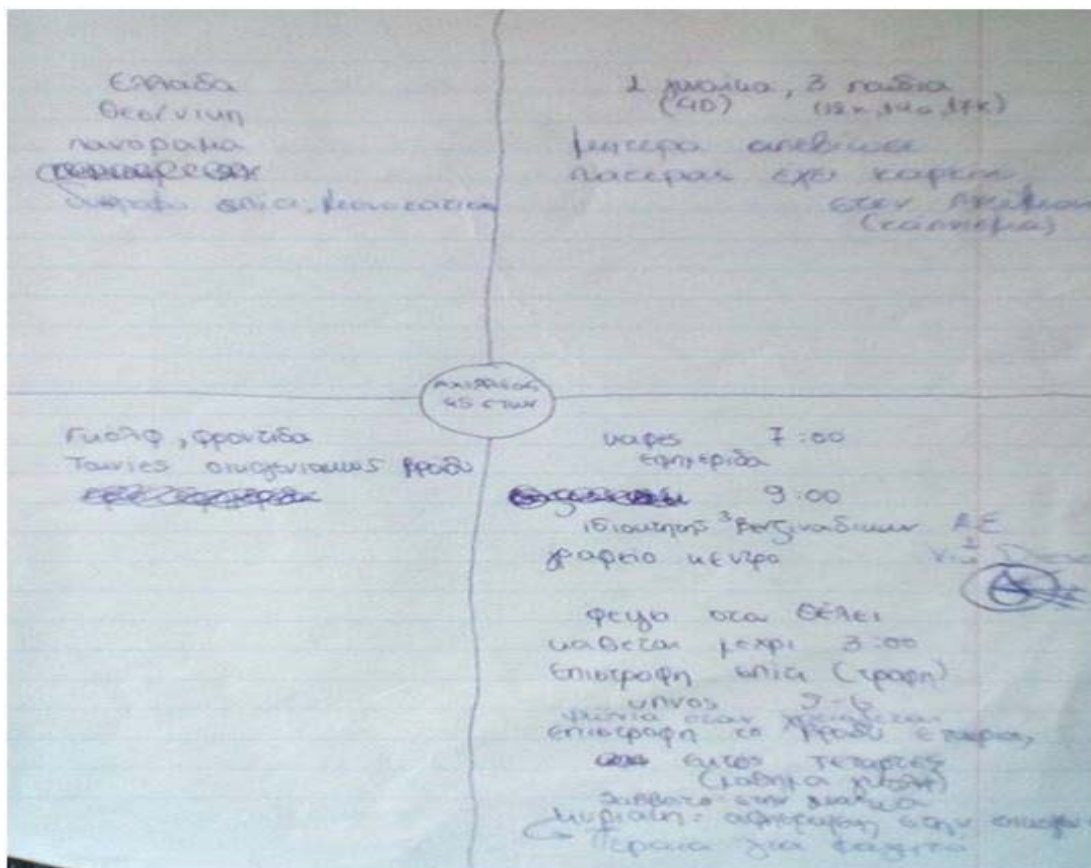 Ελλαδα
Θεσ/νικη
πανοραμα
σπιτι, μονοκατοικια
1 γυναικα, 3 παιδια
(40)
μητερα απεβιωσε
πατερας εχει καρκινο
στον πνευμονα
(καπνισμα)
45 ετων
Γκολφ, φροντιδα
Ταινιες οικογενειακως βραδυ
καφες 7:00
εφημεριδα
9:00
ιδιοκτητης 3 βενζιναδικων ΑΕ
γραφειο κεντρο
οτα θελει
καθεται μεχρι 3:00
επιστροφη σπιτι (τροφη)
υπνος
ψωνια οταν χρειαζεται
επιστροφη το βραδυ εταιρια,
εκτος τεταρτες
(μαθημα γκολφ)
Σαββατο στην
Κυριακη: αφιερωμενη στην
Περαια για φαγητο